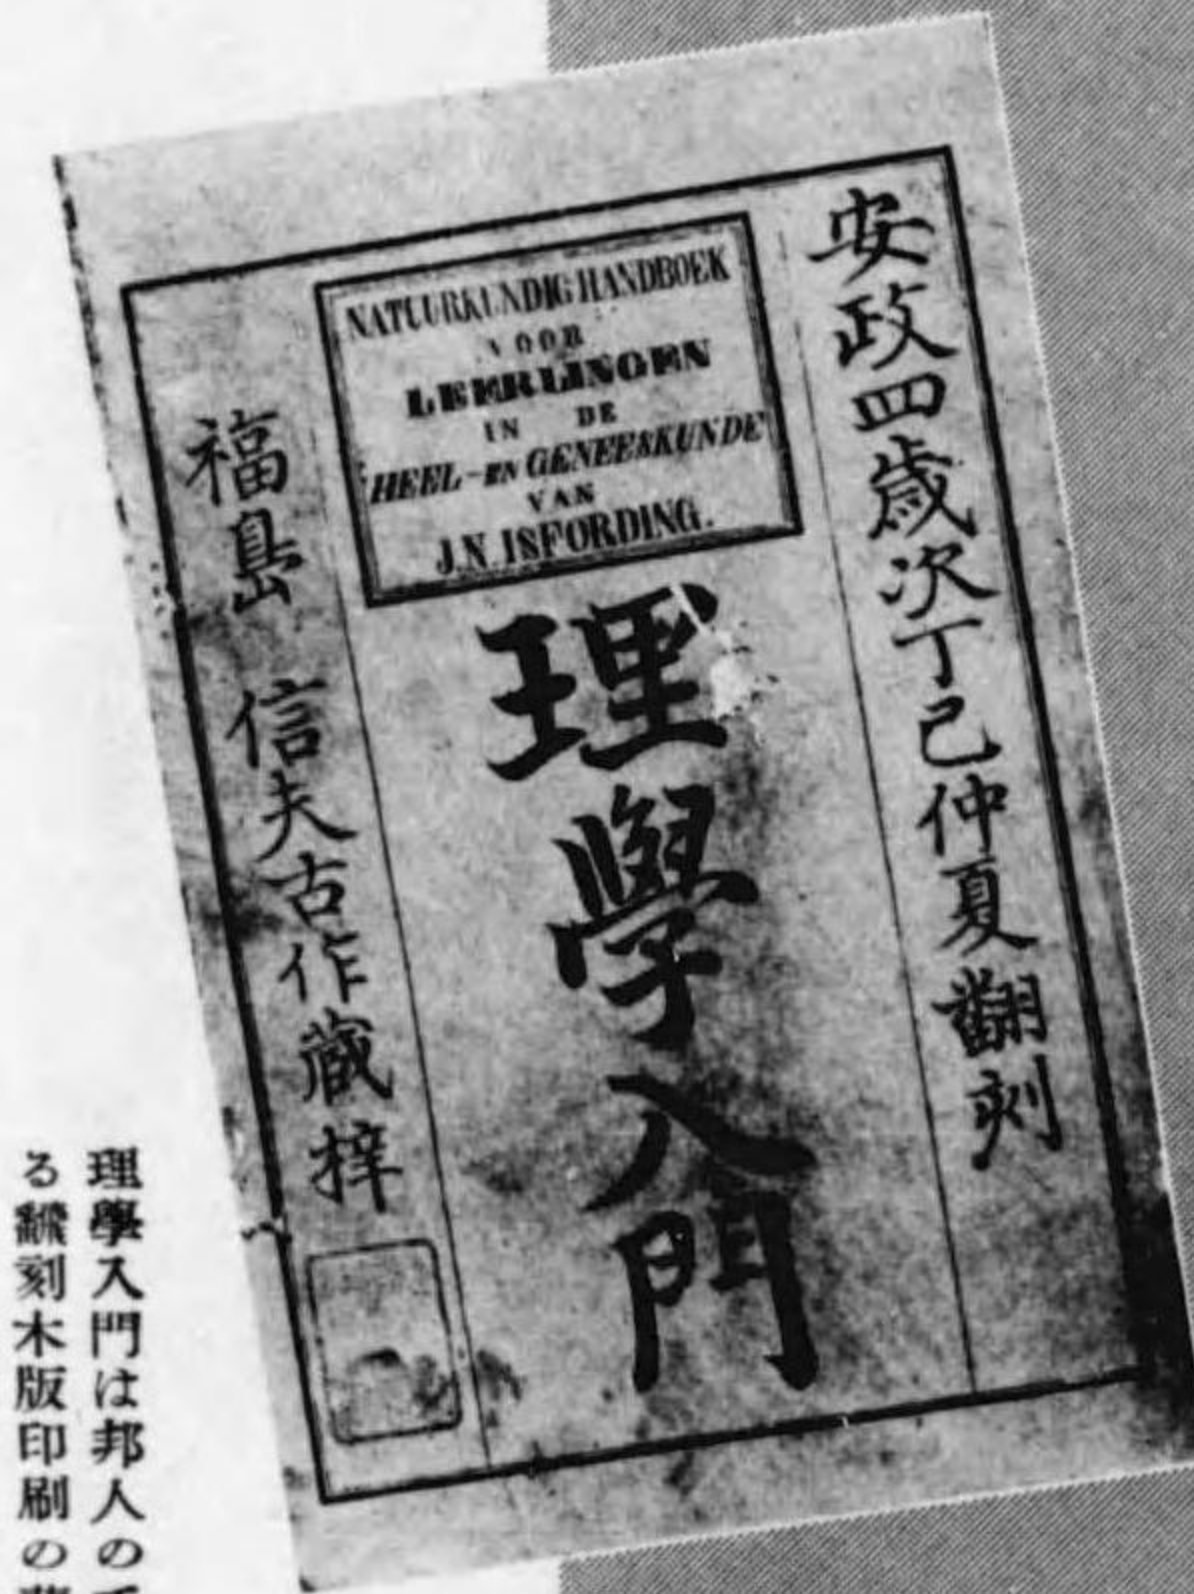 安政四歳次丁巳仲夏翻刻
NATUURKUNDIG HANDBOEK
VOOR
LEERLINGEN
IN DE
HEEL-EN GENEESKUNDE
VAN
J.N. ISFORDING.
理學入門
福島 信夫古作蔵梓
理學入門は邦人の
る飜刻木版印刷の